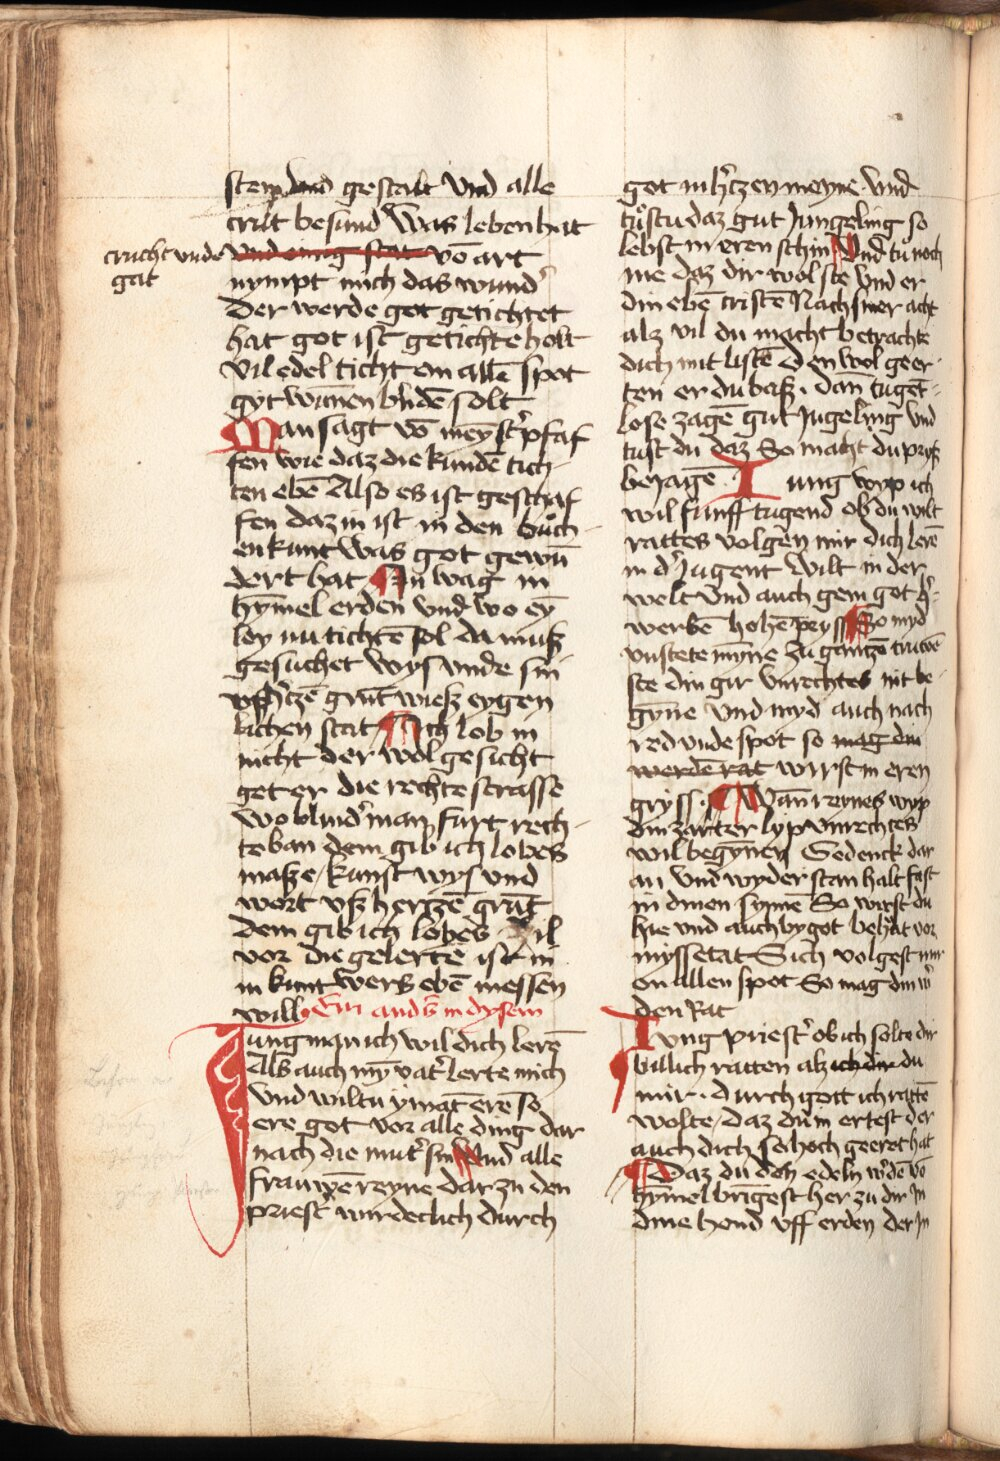 stein und gestalt Vnd alle
crut besund Was leben hat
crucht vnde
gat
Vnd einig stat vō art
nympt mich das wund'
Der werde got getichtet
hat got ist getichte holt
vil edel ticht em allē spot
gyt wūnen blidē solt
Man sagt vō meyst' pfaf
fen wie daz die kundē tich
ten ebē Also es ist geschaf
fen daz in ist in den buͦch
en kunt Was got gewū
dert hat In wag in
hymel erden vnd wo ey
ley nu tichtē sol da muß
gesuchet wys vnde sin
vß h'tzē grūt wieß eygen
lichen stat Ich lob in
nicht der wol gesicht
get er die rechte strasse
wo blind' man furt rech
te ban dem gib ich lobes
maße / kunst wys vnd
wort vß hertzē grūt
dem gib ich lobes vil
vor die gelertē ist in
in kunt wers ebē messen
will Ein and's in dysem
Iung man ich wil dich lerē
Als auch my vat' lerte mich
vnd wiltu ymāt erē so
ere got vor alle ding dar
nach die mut' sin Vnd alle
frauwē reyne dar zu den
priest' wirdeclich durch
got in h'tzen meyne Vnd
tuͦstu daz gut Jungeling so
lebst in eren schin Vnd tu noch
me daz dir wol ste Vnd er
din ebē cristē Nach siner acht
alz vil du macht betrachte
dich mit listē Den wol geer
ten er du baß. dan tuget
lose zagē gut Jugeling vnd
tust du daz So macht du pryß
beiagē Iung wyp ich
wil funff tugend ob du wilt
rattes volgen mir dich lerē
in d' Jugent Wilt in der
welt vnd auch gein got h'
werbē hohē preyß So myd
vnstete mȳne zu gantzē truwē
ste din gir vnrechtes nit be
gyne vnd myd auch nach
red vnde spot so mag din
werdē rat wirst in eren
gryß Wan reynes wyp
din zarter lyp vnrechtes
wil begynen Gedenck dar
an vnd wyder stan halt fast
in dinen synnē So wirst du
hie vnd auch by got behuͦt vor
myssetat Sich volgest mir
on allen spot So mag din w'
den Rat
Iung priest' ob ich solte dir
billich ratten alz ich dir du
mir. durch gott ich rattē
wolte / daz du in ertest der
auch dich so hoch geeret hat
Daz du den edeln w'dē vō
hymel bringest her zu dir In
dine hend vff erden der In